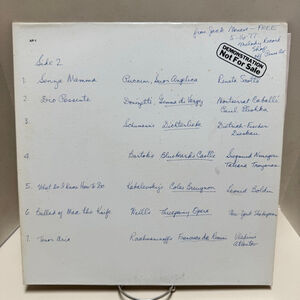 from Jack Moran - FREE
5-16-77
Melody Record
Shop
DEMONSTRATION
Not For Sale
Side 2
1. Senza Mamma Puccini, Suor Angelica Renata Scotto
2. Dio Possente Donizetti, Gemma di Vergy Montserrat Caballé
Paul Plishka
3. Schumann's Dichterliebe Dietrich Fischer
Dieskau
4. Bartok's Bluebeard's Castle Siegmund Nimsgern
Tatiana Troyanos
5. What do I Know How to Do Kabalevsky's Colas Breugnon Leonid Boldin
6. Ballad of Mac the Knife Weill's Threepenny Opera New York Shakespeare
7. Tenor Aria Rachmaninoff's Francesca da Rimini Vladimir
Atlantov